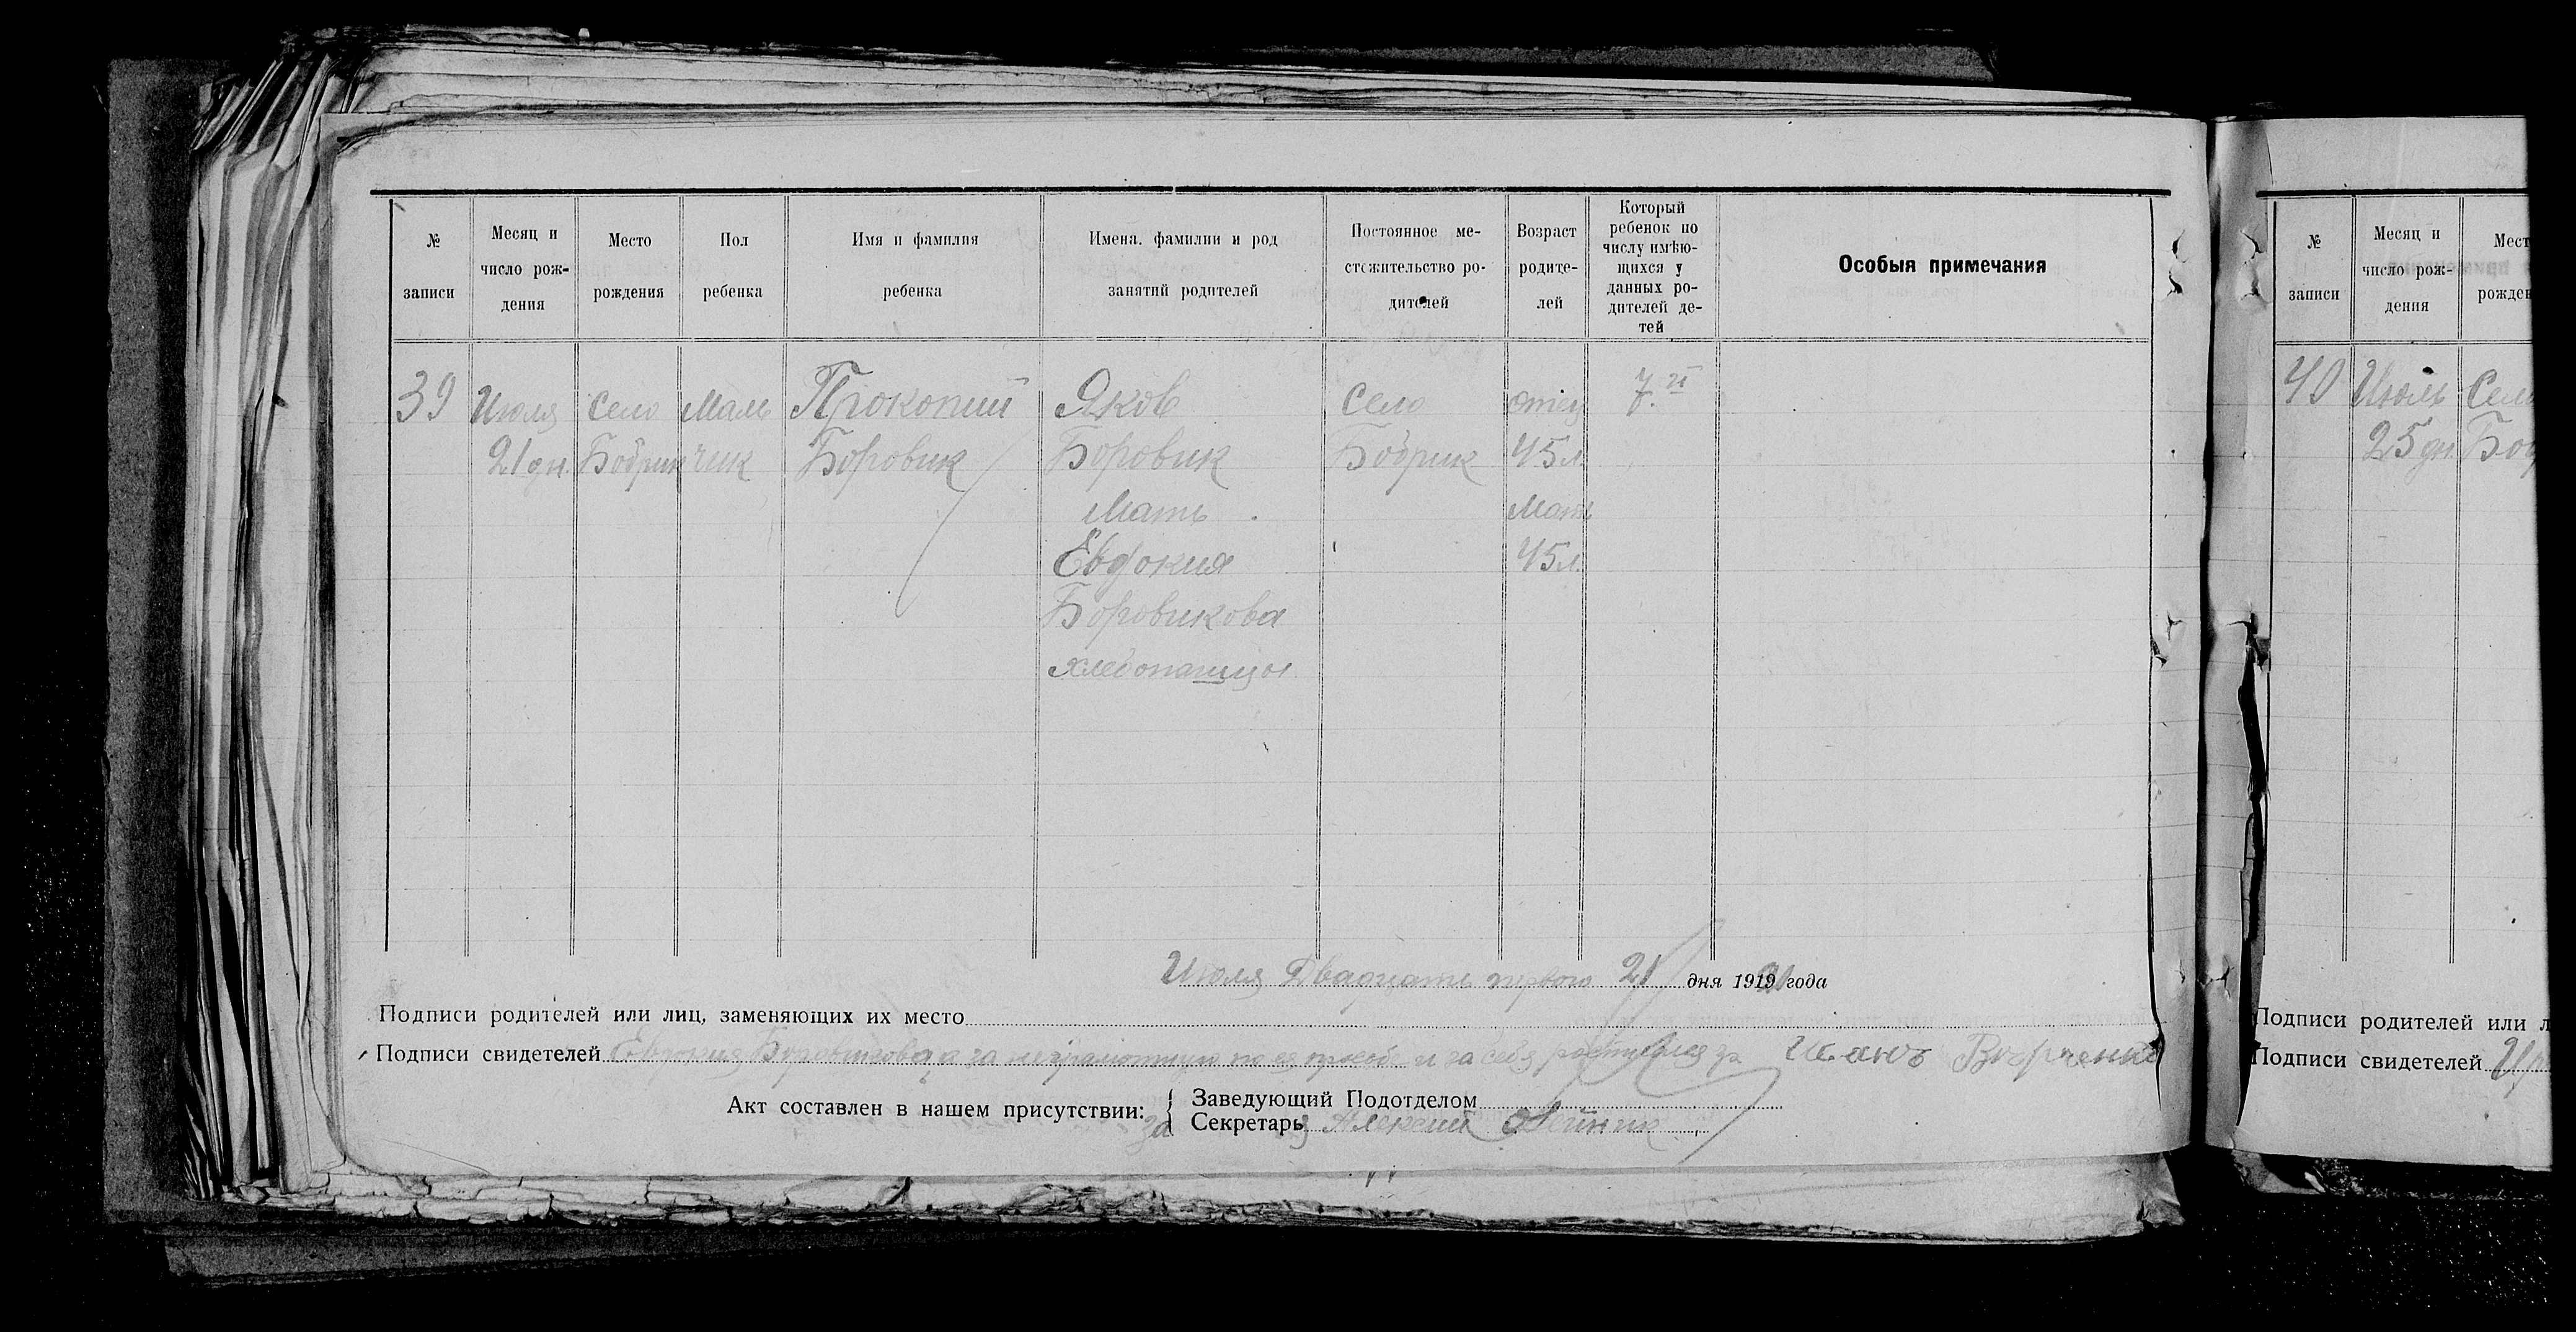 № записи
Месяц и число рож-дения
Место рождения
Пол ребенка
Имя и фамилия ребенка
Имена. фамилии и род занятий родителей
Постоянное ме-стожительство ро-дителей
Возраст родите-лей
Который ребенок по числу имѣю-щихся у данных ро-дителей де-тей
Особыя примечания
39 Июля село Маль Прокопий Яков село отец 7.й
21 дн. Бобрик чик Боровик Боровик Бобрик 45 л.
Мать . Мать
Евдокия 45 л.
Боровикова
хлебопашцы
Июля Двадцать первого 21 дня 1919 года
Подписи родителей или лиц, заменяющих их место
Подписи свидетелей Евдокия Боровикова, а за неграмотную по ея прозбе и за себя
Иванъ
Акт составлен в нашем присутствии:
Заведующий Подотделом
за Секретарь Алексий Олейник
№ записи
Месяц и число рож-дения
Мест
рожден
40 Июль Село
25 дн.
Подписи родителей или л
Подписи свидетелей